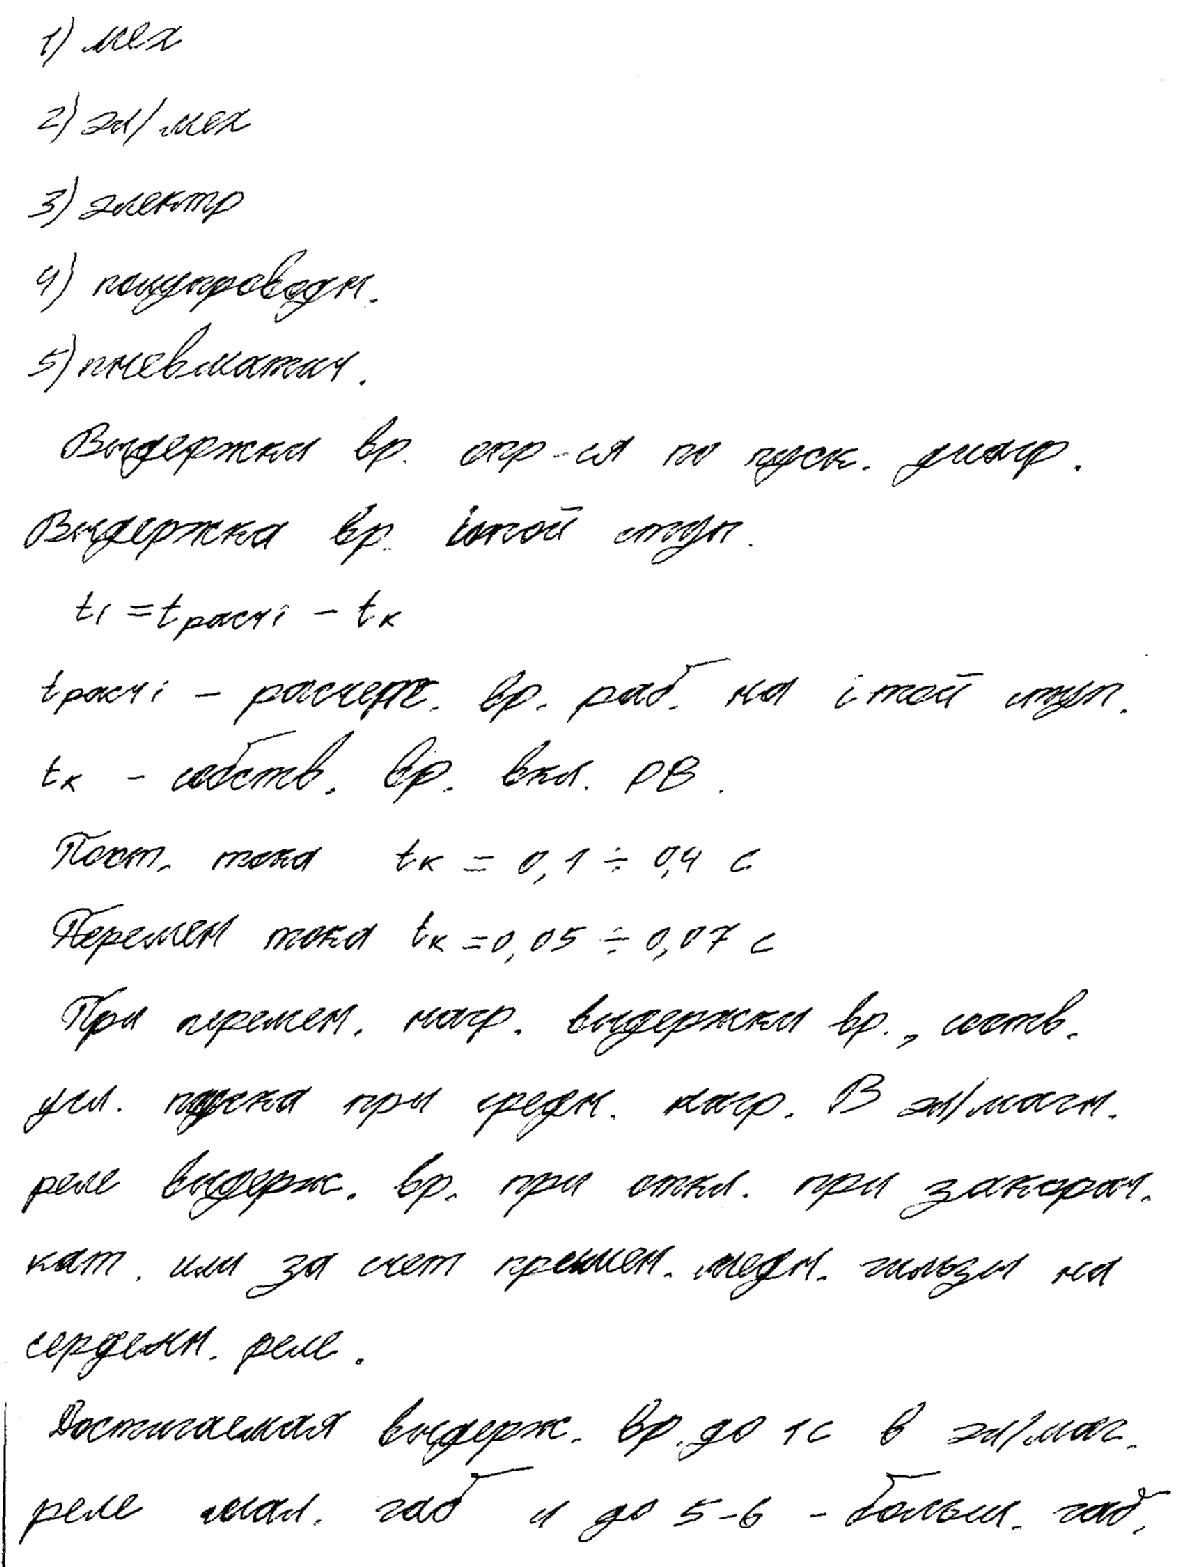 1) мех
2) эл/мех
3) электр
4) полупроводн.
5) пневматич.
Выдержки вр. опр-ся по пуск. диагр.
Выдержка вр. iтой ступ.
ti = tрасчi – tк
tрасчi – расчетн. вр. раб. на i той ступ.
tк – собств. вр. вкл. РВ.
Пост. тока tк = 0,1 ÷ 0,4 с
Перемен тока tк = 0,05 ÷ 0,07 с
При перемен. нагр. выдержки вр., соотв.
усл. пуска при средн. нагр. В эл/магн.
реле выдерж. вр. при откл. при закорач.
кат. или за счет примен. медн. гильзы на
сердечн. реле.
Достигаемая выдерж. вр. до 1с в эл/маг.
реле мал. габ и до 5-6 – больш. габ.